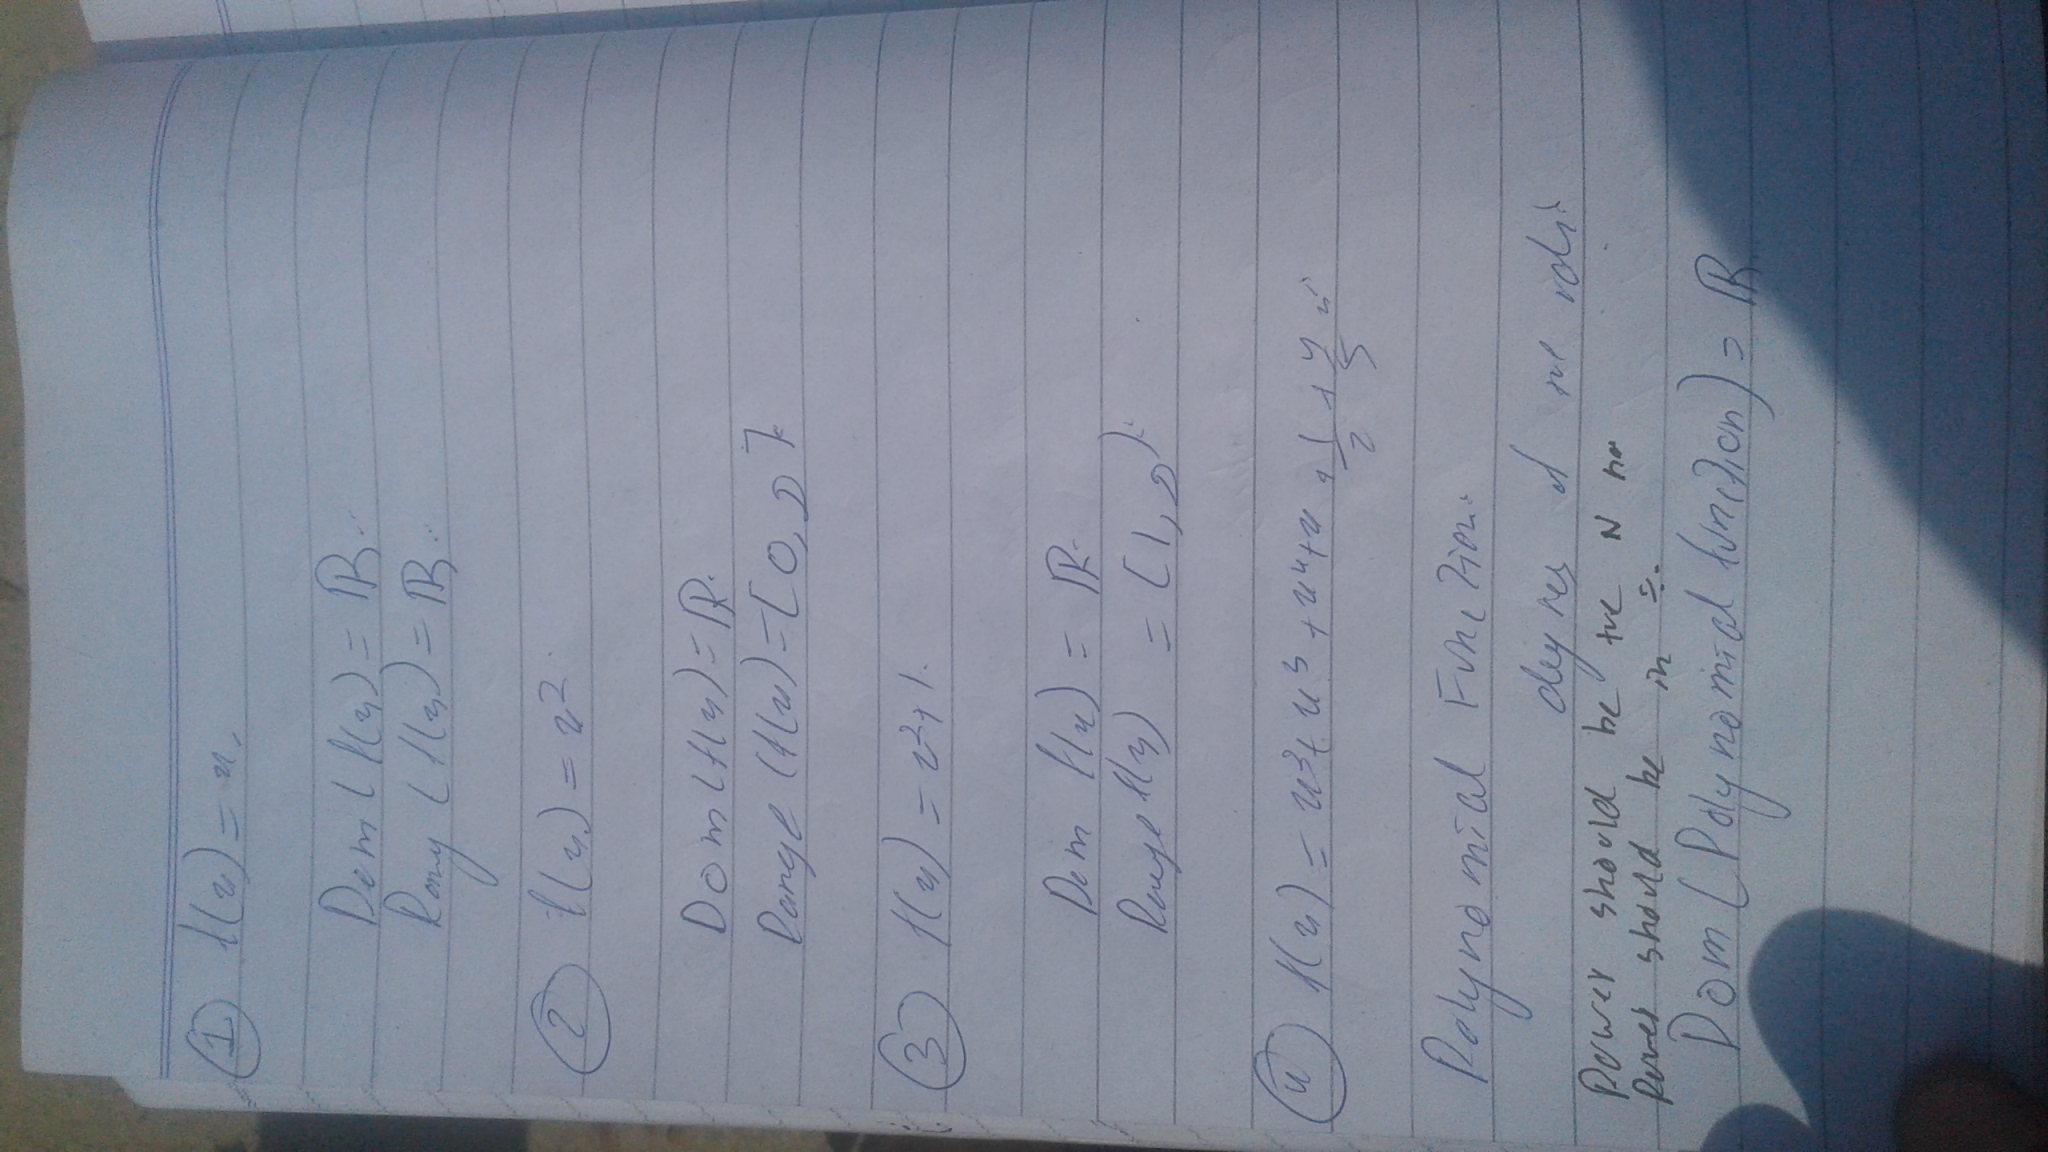 1 f(x) = x.
Dom (f(x)) = ℝ.
Rang (f(x)) = ℝ.
2 f(x) = x²
Dom (f(x)) = ℝ.
Range (f(x)) = [0, ∞]
3 f(x) = x²+1.
Dom f(x) = ℝ.
Range f(x) = [1, ∞)
4 f(x) = x³ + x³ + x⁴ + x + 1/2 + 4/5
Polynomial Function.
degrees of
Power should be +ve N no
Power should be in
Dom (Polynomial function) = ℝ